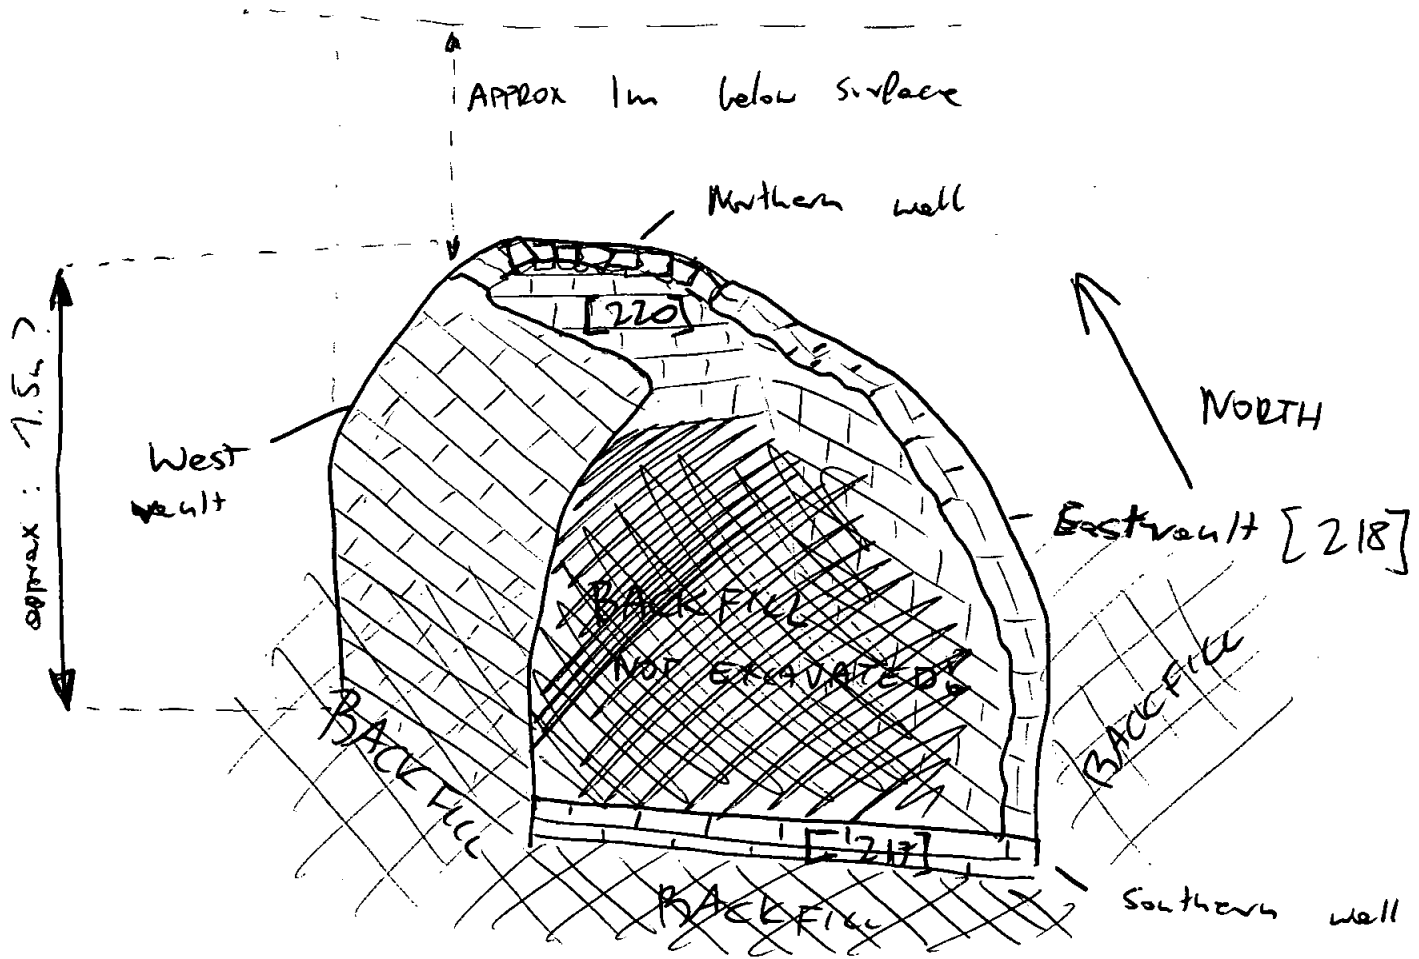 APPROX 1m below surface
Northern wall
[220]
approx : 1.5m ?
NORTH
West
vault
East vault [218]
BACKFILL
NOT EXCAVATED
BACKFILL
BACKFILL
[217]
BACKFILL
Southern wall